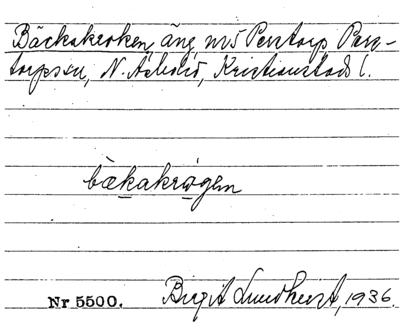 Bäckakroken, äng, nr 5 Perstorp Pers-
torps sn, N. Åsbo hd, Kristianstads l.
bækakrǫgen
Nr 5500. Birgit Lundkvist, 1936.